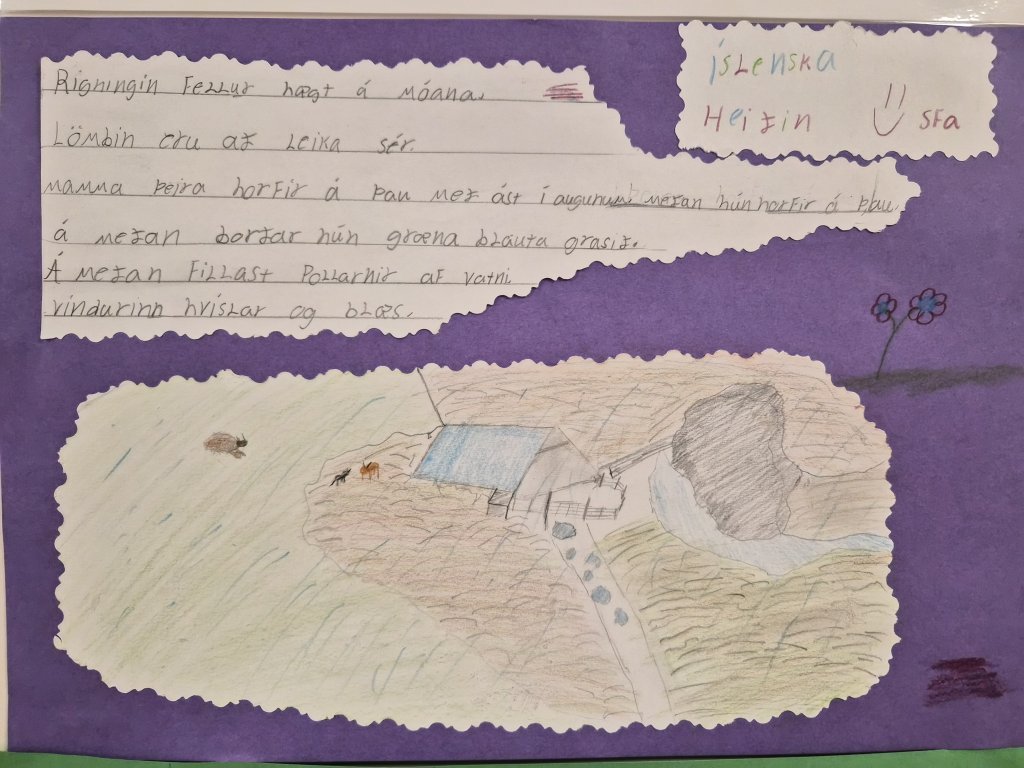 Rigningin fellur hægt á móana.
Lömbin eru að leika sér.
mamma þeira horfir á þau með ást í augunum meðan hún horfir á þau.
á meðan borðar hún græna blauta grasið.
Á meðan fillast pollarnir af vatni
vindurinn hvíslar og blæs.
íslenska
Heiðin
SFA